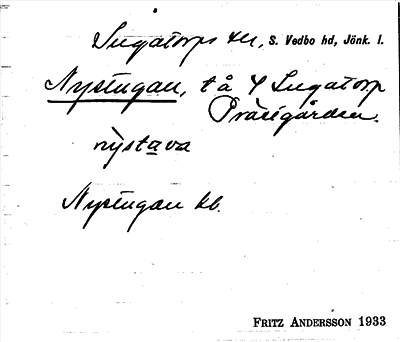 Ingatorps sn, S. Vedbo hd, Jönk. l.
Nystugan, t å 4 Ingatorp
Prästgården.
nỳstava
Nystugan kb.
FRITZ ANDERSSON 1933